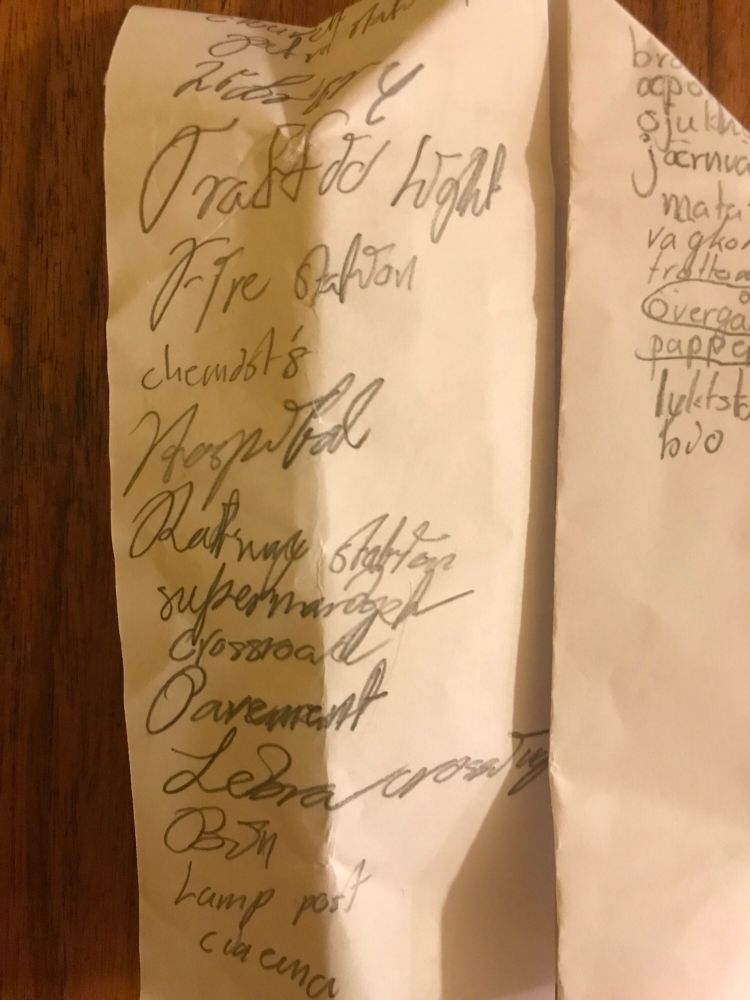 Library
Traffic light
Fire station
chemist's
Hospital
Railway station
crossroad
Pavement
Zebra crossing
Bin
Lamp post
cinema
apo
sjukh
järnva
mata
vagkor
trottoa
överga
papper
lyktsto
bio